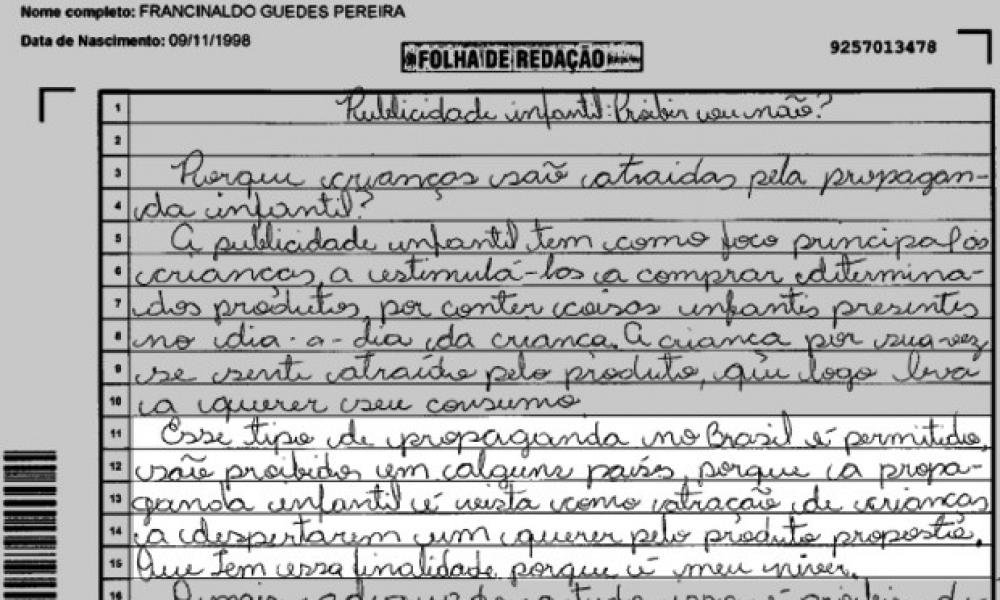 Nome completo: FRANCINALDO GUEDES PEREIRA
Data de Nascimento: 09/11/1998
FOLHA DE REDAÇÃO
9257013478
1 Publicidade infantil: Proibir ou não?
2
3 Porque crianças são atraidas pela propagan-
4 da infantil?
5 A publicidade infantil tem como foco principal as
6 crianças, a estimulá-los a comprar determina-
7 dos produtos, por conter coisas infantis presentes
8 no dia-a-dia da criança. A criança por sua vez
9 se sente atraído pelo produto, que logo leva
10 a querer seu consumo
11 Esse tipo de propaganda no Brasil é permitido,
12 são proibidos em alguns país, porque a propa-
13 ganda infantil é vista como atração de crianças
14 a despertarem um querer pelo produto proposto.
15 Que tem essa finalidade, porque é meu niver.
16